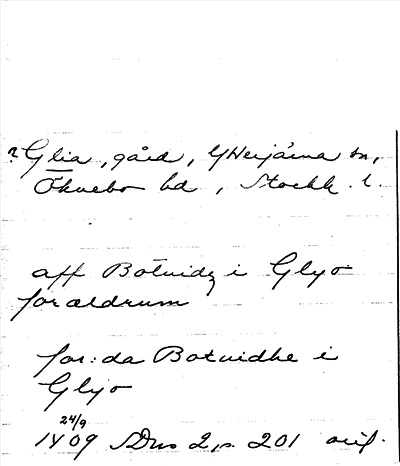 ? Glia, gård, YHerjårna sn,
Öknebo hd, Stockh. l.
aff Botuidz i Glyo
foraldrum
for: da Botuidhe i
Glyo
24/9
1409 SDns 2, s. 201 orig.